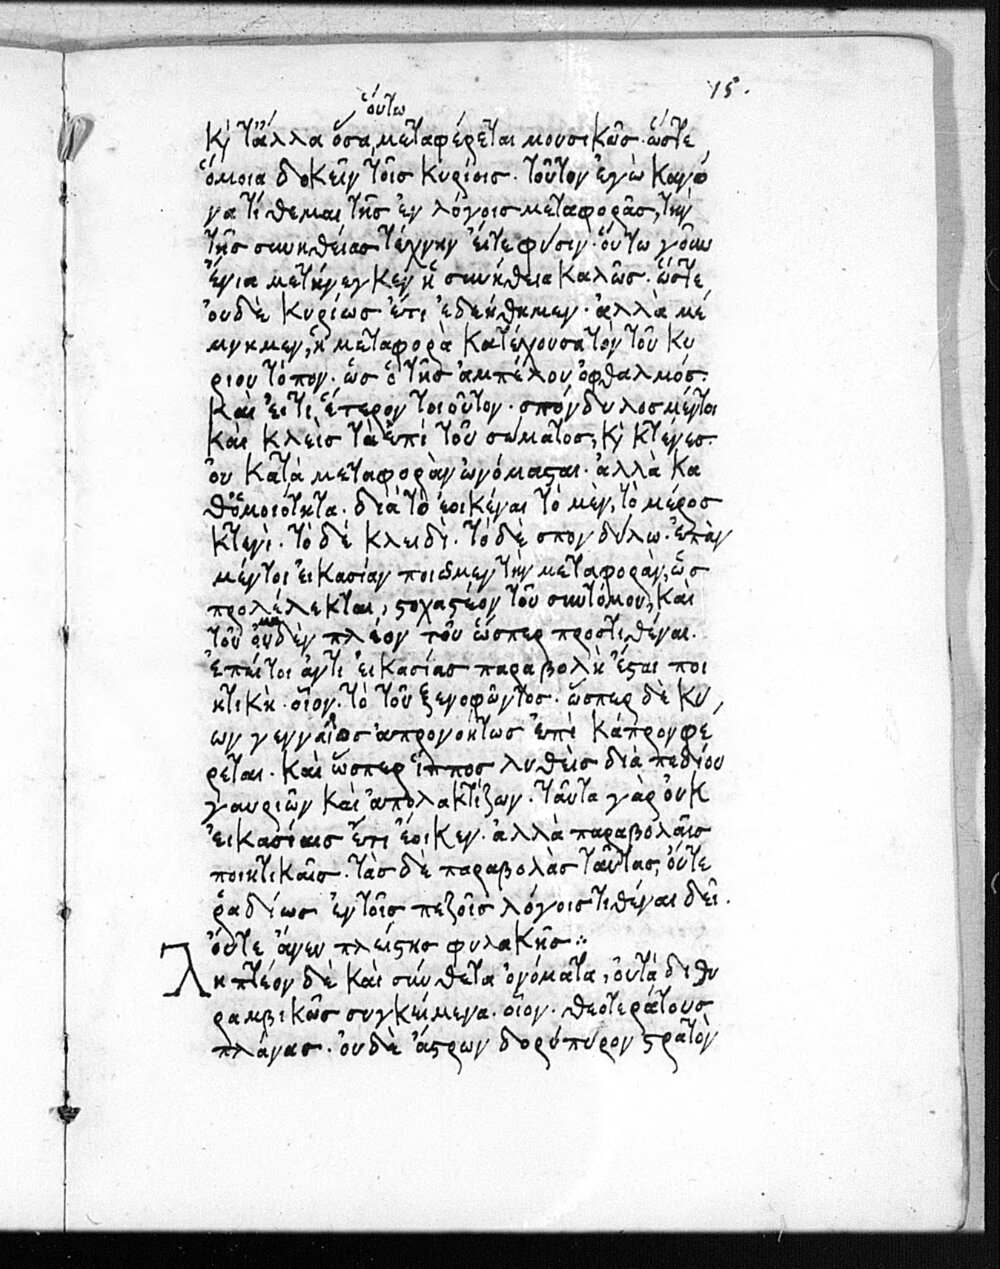 15.
οὕτω
κỳ τἄλλα ὅσα μεταφέρεται μουσικῶς· ὥστε
ὅμοια δοκεῖν τοῖς κυρίοις· τοῦτον ἐγὼ κανό
να τίθεμαι τῆς ἐν λόγοις μεταφορᾶς, τὴν
τῆς συνηθείας τέχνην εἴτε φύσιν· οὕτω γοῦν
ἔνια μετήνεγκεν ἡ συνήθεια καλῶς· ὥστε
οὐδὲ κυρίως ἔτι ἐδεήθημεν· ἀλλὰ με
μνημεν, ἡ μεταφορὰ κατέχουσα τὸν τοῦ κυ
ρίου τόπον· ὡς ὁ τῆς ἀμπέλου ὀφθαλμός·
καὶ εἴ τι ἕτερον τοιοῦτον· σπόνδυλος μέντοι
καὶ κλεὶς τὰ ἐπὶ τοῦ σώματος, κỳ κτένες·
οὐ κατὰ μεταφορὰν ὠνόμασται· ἀλλὰ κα
θ' ὁμοιότητα· διὰ τὸ ἐοικέναι τὸ μὲν, τὸ μέρος
κτενὶ· τὸ δὲ κλειδὶ· τὸ δὲ σπονδύλῳ· ἐπὰν
μέντοι εἰκασίαν ποιῶμεν τὴν μεταφορὰν, ὡς
προλέλεκται, στοχαστέον τοῦ συντόμου, καὶ
τοῦ μηδὲν πλέον τοῦ ὥσπερ προστιθέναι·
ἐπεί τοι ἀντὶ εἰκασίας παραβολὴ ἔσται ποι
ητικὴ· οἷον· τὸ τοῦ ξενοφῶντος· ὥσπερ δὲ κύ
ων γενναῖος ἀπρονοήτως ἐπὶ κάπρον φέ
ρεται· καὶ ὥσπερ ἵππος λυθεὶς διὰ πεδίου
γαυριῶν καὶ ἀπολακτίζων· ταῦτα γὰρ οὐκ
εἰκασίαις ἔτι ἔοικεν· ἀλλὰ παραβολαῖς
ποιητικαῖς· τὰς δὲ παραβολὰς ταύτας, οὔτε
ῥᾳδίως ἐν τοῖς πεζοῖς λόγοις τιθέναι δεῖ.
οὔτε ἄνευ πλείστης φυλακῆς :·
ληπτέον δὲ καὶ σύνθετα ὀνόματα, οὐ τὰ διθυ
ραμβικῶς συγκείμενα· οἷον· θεοτεράτους
πλάνας· οὐδὲ ἄστρων δορύπυρον στρατὸν